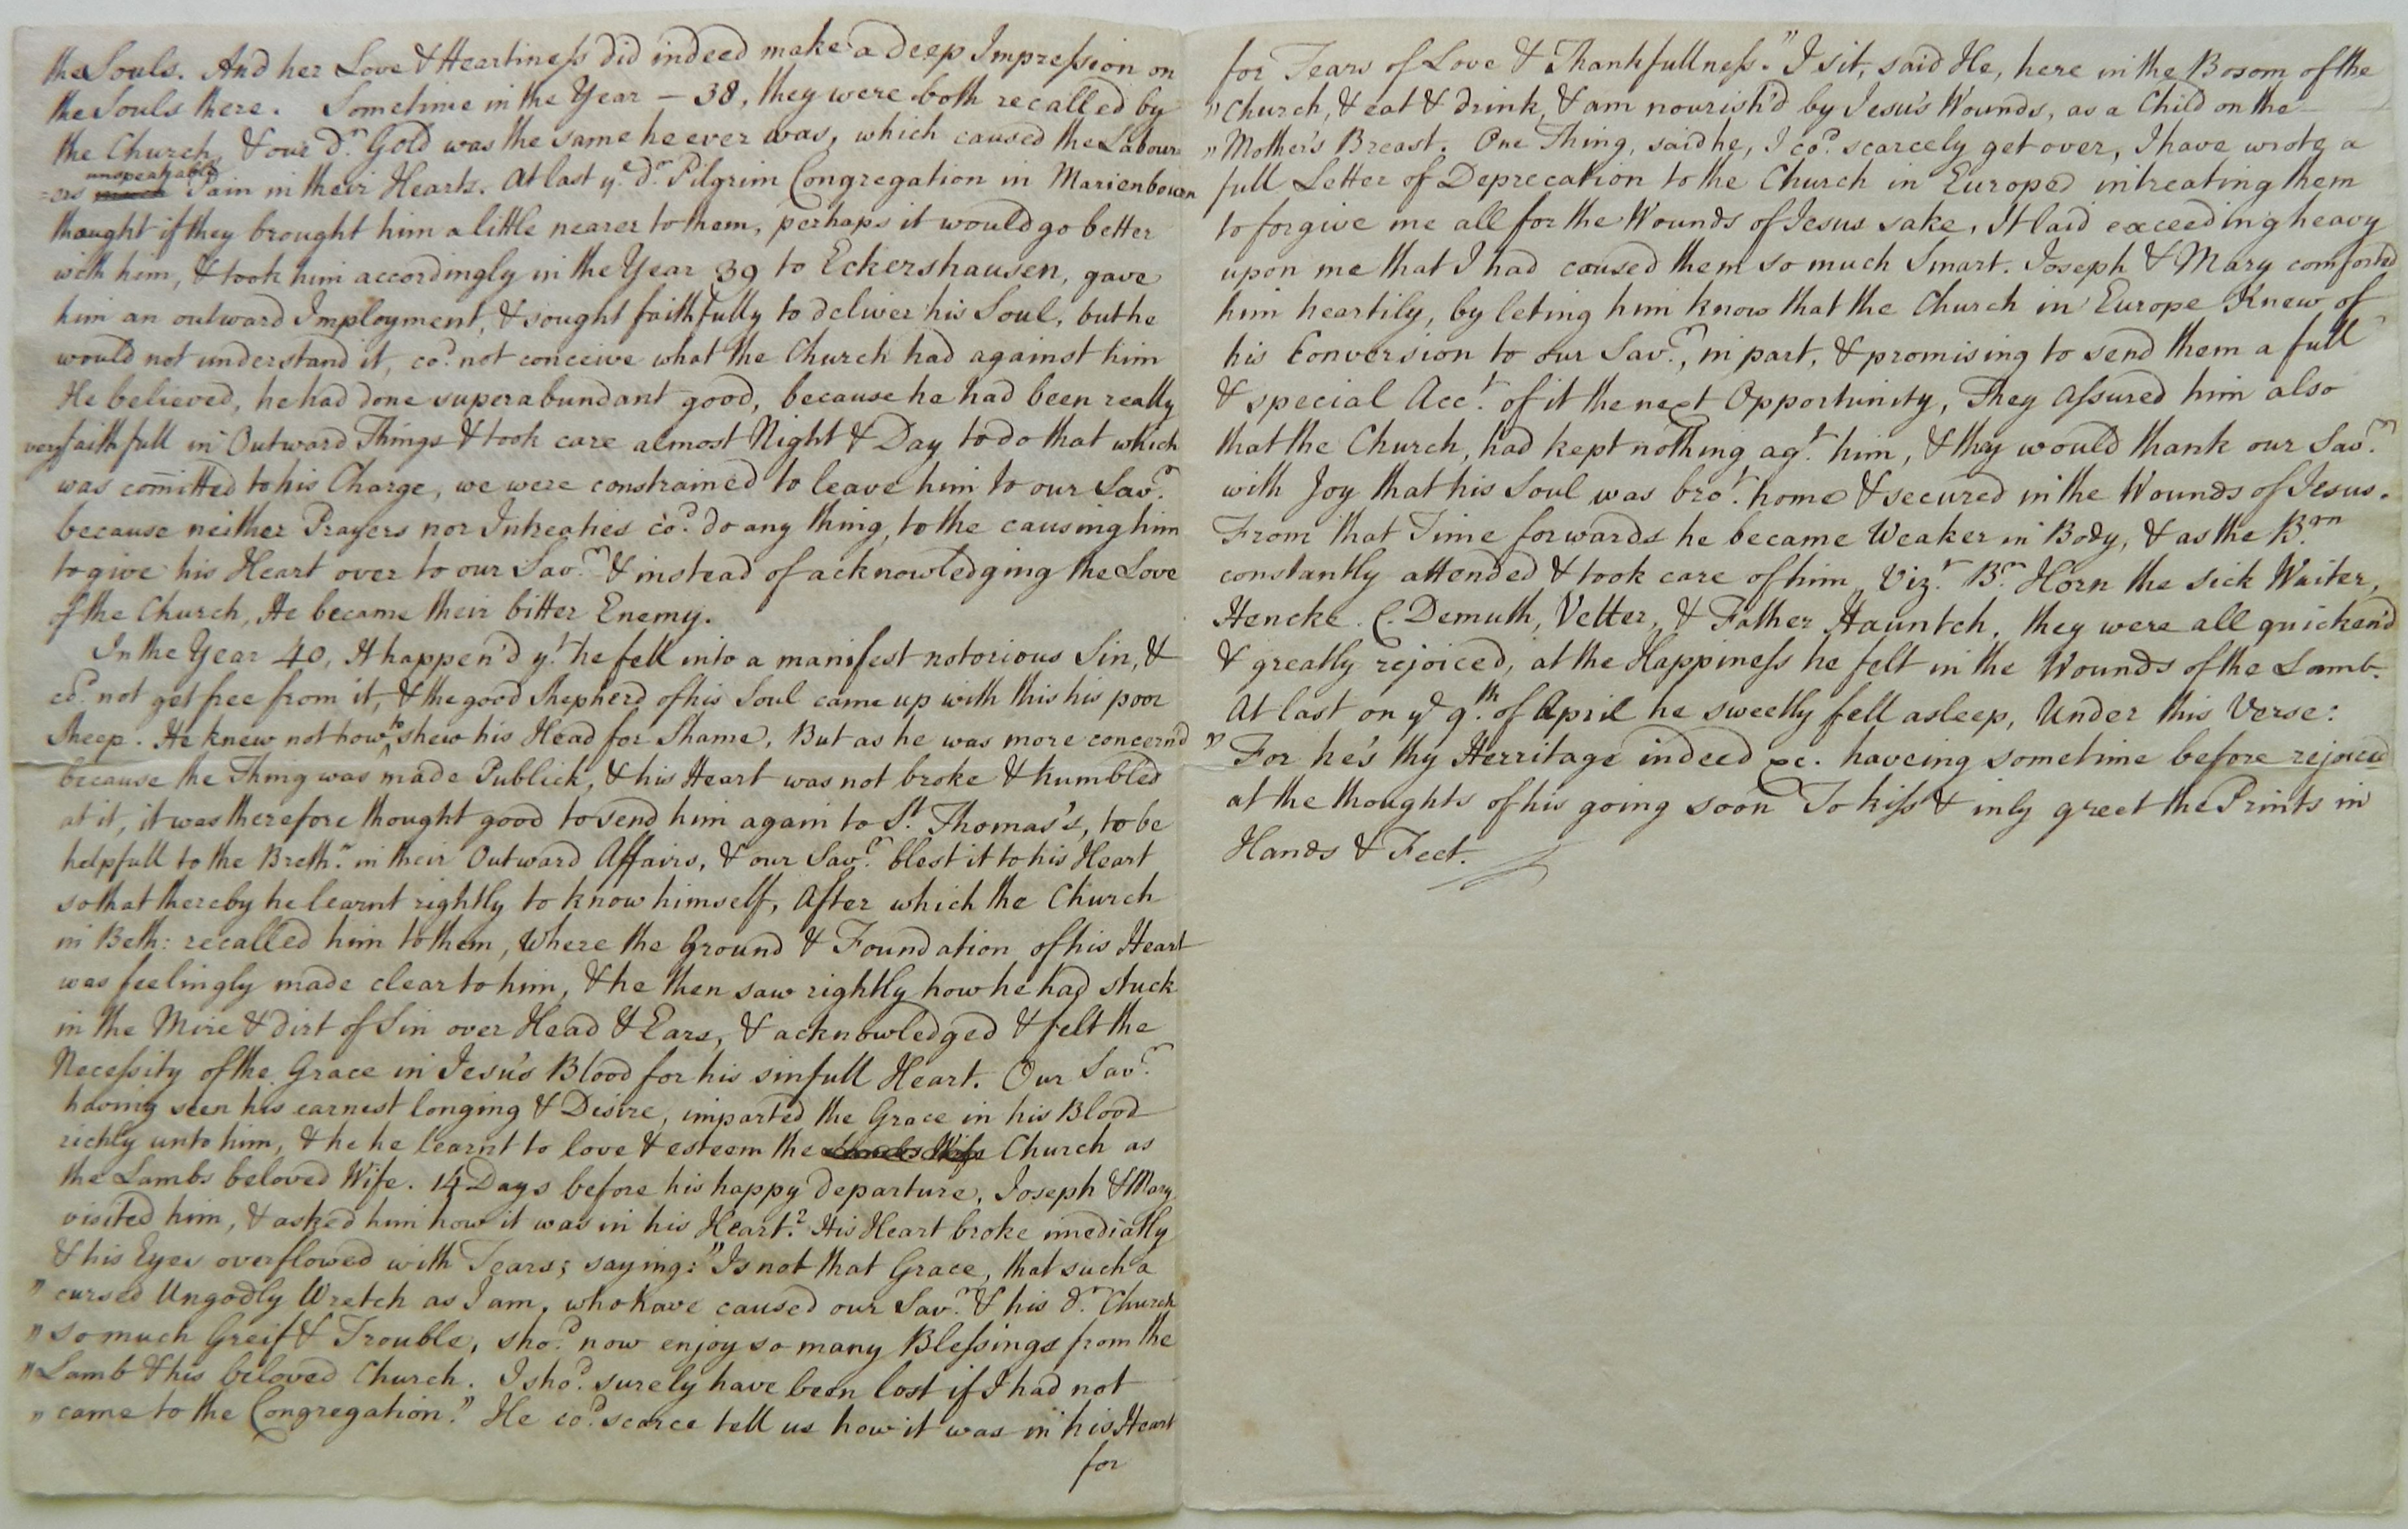 the Souls. And her Love & Heartiness did indeed make a deep Impression on
the Souls there. Sometime in the Year – 38, they were both recalled by
the Church, & our dr. Gold was the same he ever was, which caused the Labour-
unspeakable
=ers much Pain in their Hearts. At last ye. dr. Pilgrim Congregation in Marienbourn
thought if they brought him a little nearer to them, perhaps it would go better
with him, & took him accordingly in the Year 39 to Eckershausen, gave
him an outward Imployment, & sought faithfully to deliver his Soul, but he
would not understand it, cod. not conceive what the Church had against him
He believed, he had done superabundant good, because he had been really
very faithfull in Outward Things & took care almost Night & Day to do that which
was comitted to his Charge, we were constrained to leave him to our Savr.
because neither Prayers nor Intreaties cod. do any thing, to the causing him
to give his Heart over to our Savr. & instead of acknowledging the Love
of the Church, He became their bitter Enemy.
In the Year 40, It happen'd yt. he fell into a manifest notorious Sin, &
cod. not get free from it, & the good Shepherd of his Soul came up with this his poor
Sheep. He knew not how to shew his Head for Shame, But as he was more concern'd
because the Thing was made Publick, & his Heart was not broke & humbled
at it, it was therefore thought good to send him again to St. Thomas's, to be
helpfull to the Brethn. in their Outward Affairs, & our Savr. blest it to his Heart
so that thereby he learnt rightly to know himself, After which the Church
in Beth: recalled him to them, Where the Ground & Foundation of his Heart
was feelingly made clear to him, & he then saw rightly how he had stuck
in the Mire & Dirt of Sin over Head & Ears, & acknowledged & felt the
Necessity of the Grace in Jesu's Blood for his sinfull Heart. Our Savr.
having seen his earnest longing & Desire, imparted the Grace in his Blood
richly unto him, & he he learnt to love & esteem the Lambs Wife Church as
the Lambs beloved Wife. 14 Days before his happy departure, Joseph & Mary
visited him, & asked him how it was in his Heart? His Heart broke imediatly
& his Eyes overflowed with Tears; saying: "Is not that Grace, that such a
" cursed Ungodly Wretch as I am, who have caused our Savr. & his dr. Church
" so much Greif & Trouble, shod. now enjoy so many Blessings from the
" Lamb & his beloved Church. I shod. surely have been lost if I had not
" came to the Congregation." He cod. scarce tell us how it was in his Heart
for
for Tears of Love & Thankfullness. "I sit, said He, here in the Bosom of the
" Church, & eat & drink, & am nourish'd by Jesu's Wounds, as a Child on the
" Mother's Breast. One Thing, said he, I cod. scarcely get over, I have wrote a
full Letter of Deprecation to the Church in Europe intreating them
to forgive me all for the Wounds of Jesus sake, It laid exceeding heavy
upon me that I had caused them so much Smart. Joseph & Mary comforted
him heartily, by leting him know that the Church in Europe Knew of
his Conversion to our Savr., in part, & promising to send them a full
& special Acct. of it the next Opportunity, They Assured him also
that the Church, had kept nothing agt. him, & thay would thank our Savr.
with Joy that his Soul was brot. home & secured in the Wounds of Jesus.
From that Time forwards he became Weaker in Body, & as the Brn.
constantly attended & took care of him, Vizt. Br. Horn the Sick Waiter,
Hencke. C. Demuth, Vetter, & Father Hauntch, they were all quicken'd
& greatly rejoiced, at the Happiness he felt in the Wounds of the Lamb.
At last on ye 9th. of April he sweetly fell asleep, Under this Verse:
" For he's thy Herritage indeed &c. haveing sometime before rejoiced
at the thoughts of his going soon To kiss & inly greet the Prints in
Hands & Feet.